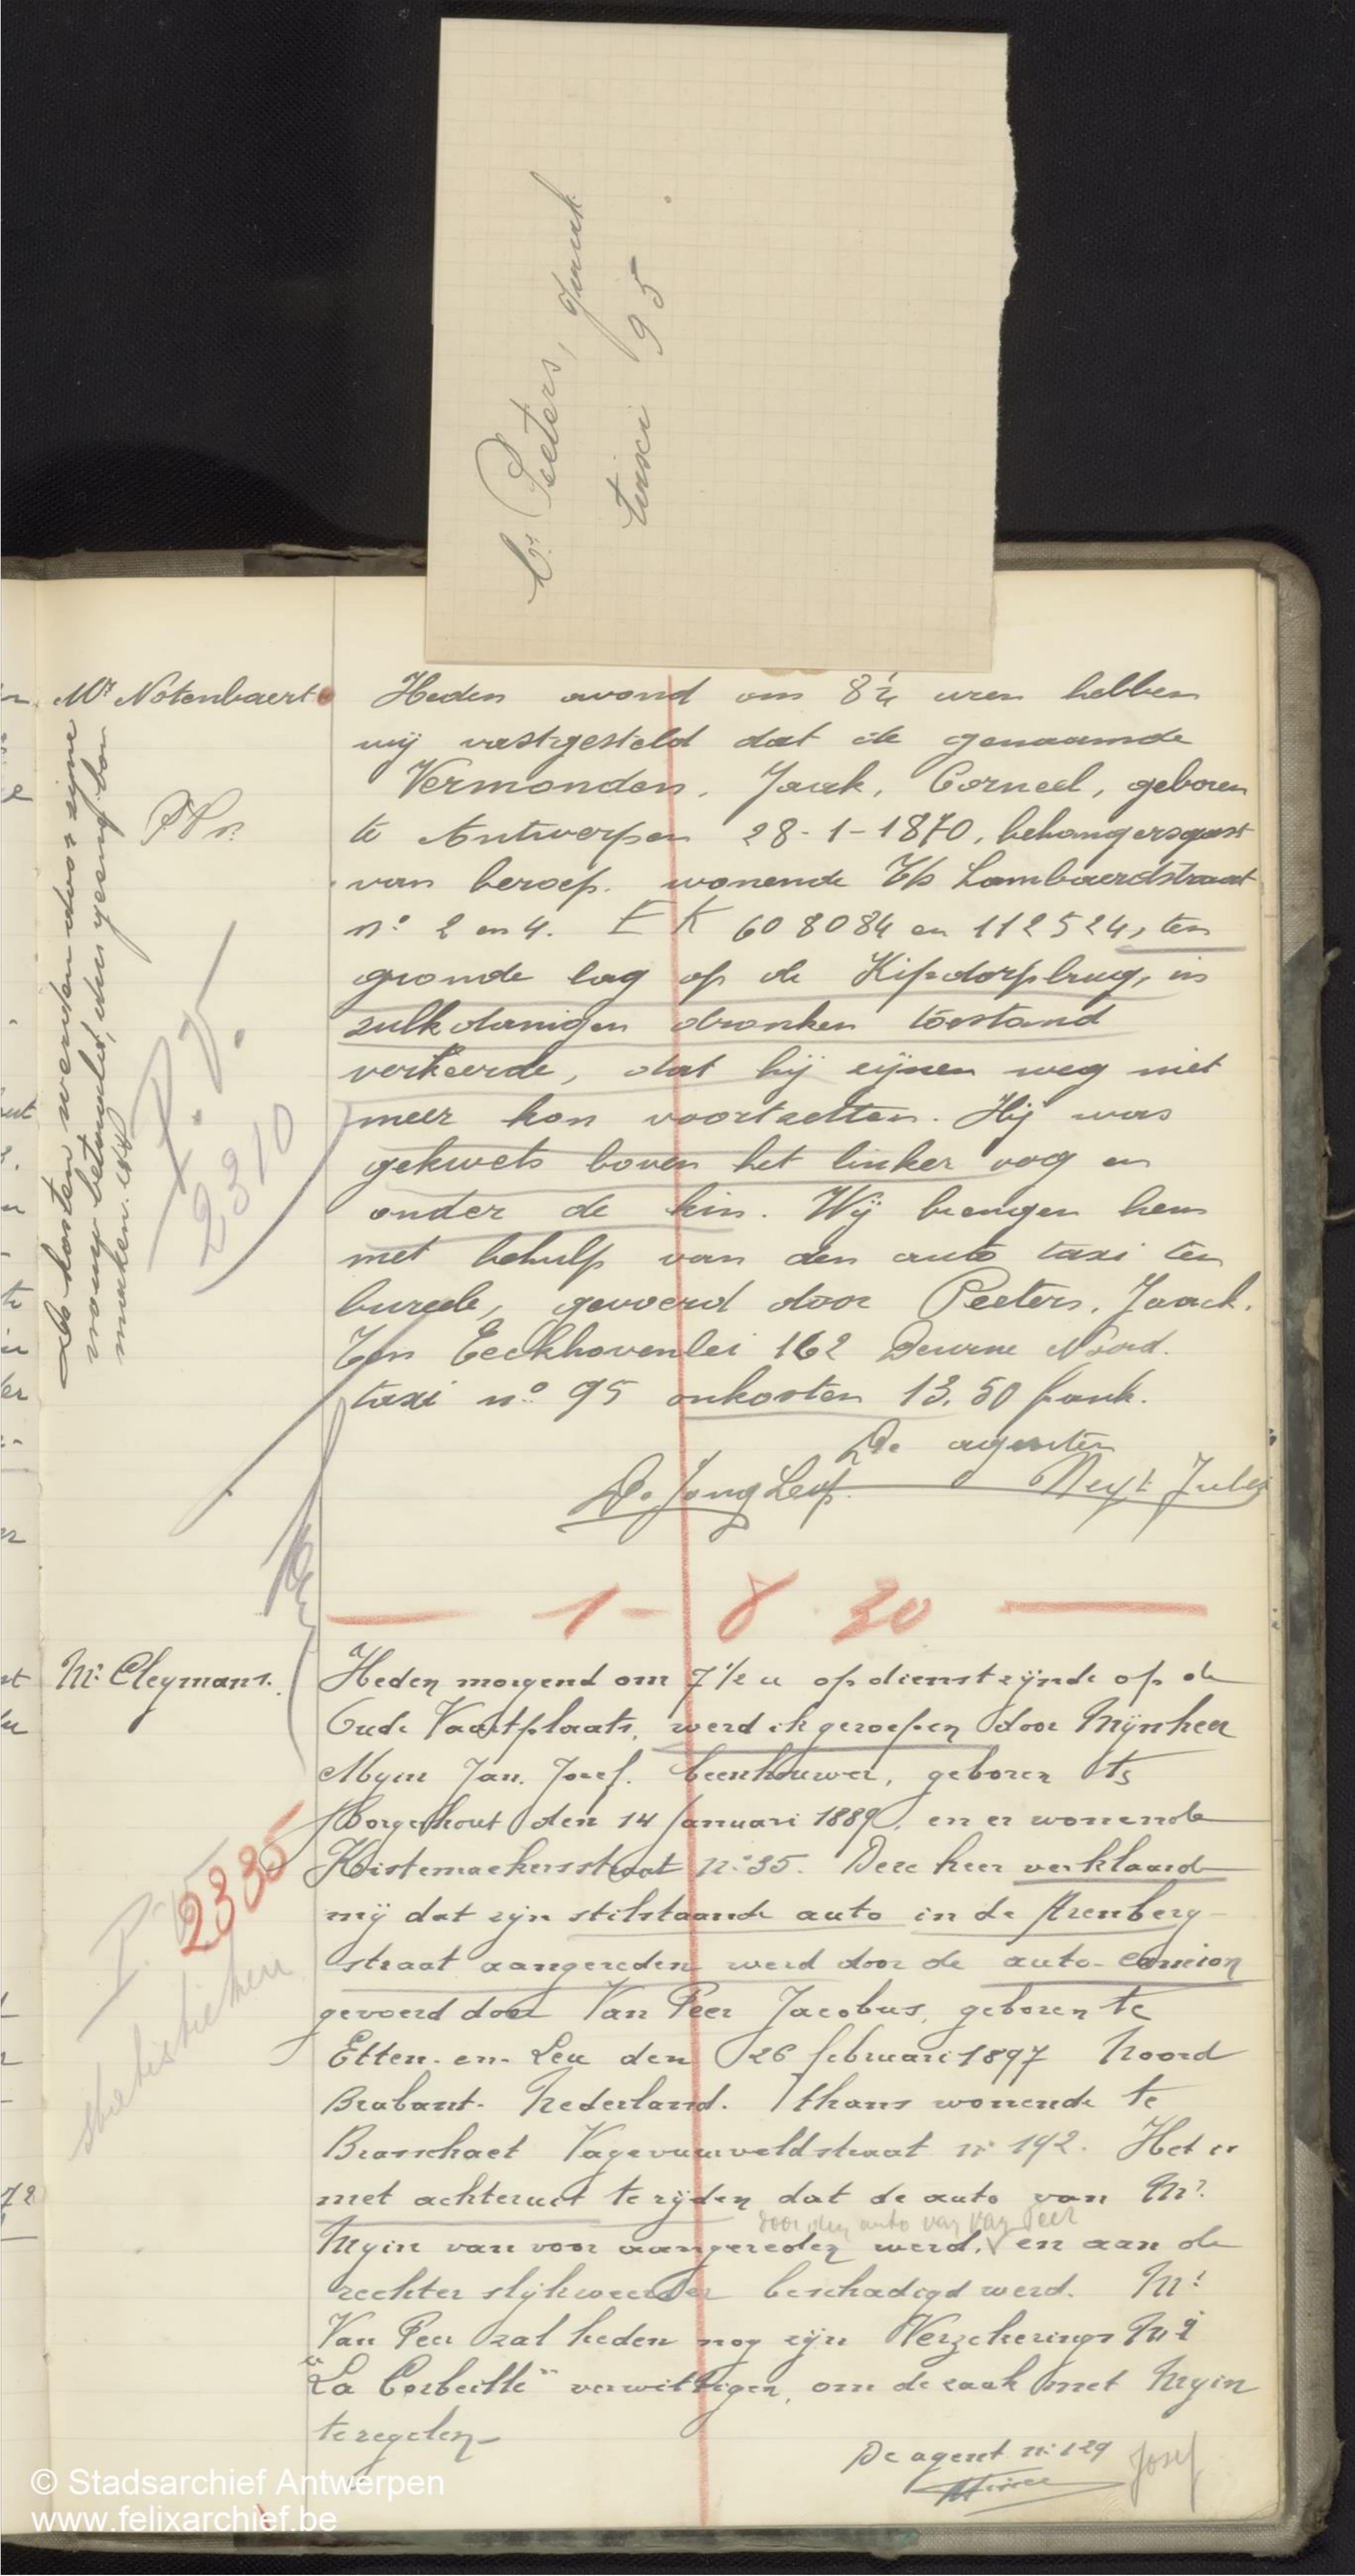 Peeters, Jaak
taxi 95
Mr Notenbaert
De kosten werden door zijne
vrouw betaald, dus geeng bon
maken.
P.V.
2310
Heden avond om 8¼ uren hebben
wij vastgesteld dat de genaamde
Vermonden, Jaak, Corneel, geboren
te Antwerpen 28-1-1870, behangersgast
van beroep. wonende t/s Lombaerdstraat
n° 2 en 4. E K 608084 en 112524, ten
gronde lag op de Kipdorpbrug, in
zulkdanigen dronken toestand
verkeerde, dat hij zijnen weg niet
meer kon voortzetten. Hij was
gekwets boven het linker oog en
onder de kin. Wij brengen hem
met behulp van den auto taxi ten
bureele, gevoerd door Peeters, Jaack.
Ten Eeckhovenlei 162 Deurne Noord.
taxi n° 95 onkosten 13,50 frank.
De agenten
De Jong Leop. Neyt Jules
1-8 30
Mr Cleymans.
P.V.
2335
statistieken
Heden morgend om 7½ u op dienst zijnde op de
Oude Vaartplaats, werd ik geroepen door Mijnheer
Myin Jan. Jozef. beenhouwer, geboren te
Borgerhout den 14 Januari 1889, en er wonende
Kistemaekersstraat n° 35. Deze heer verklaard
mij dat zijn stilstaande auto in de Arenberg-
straat aangereden werd door de auto-camion
gevoerd door Van Peer Jacobus, geboren te
Etten-en-Leu den 26 februari 1897 Noord
Brabant-Nederland. thans wonende te
Brasschaet Vagevuurveldstraat n° 192. Het is
met achteruit te rijden dat de auto van Mr
door den auto van Van Peer
Myin van voor aangereden werd, en aan de
rechter slijkweerder beschadigd werd. Mr
Van Peer zal heden nog zijn Verzekerings Mij
"La Corbeille" verwittigen, om de zaak met Myin
te regelen
De agent n° 129
Josef
© Stadsarchief Antwerpen
www.felixarchief.be